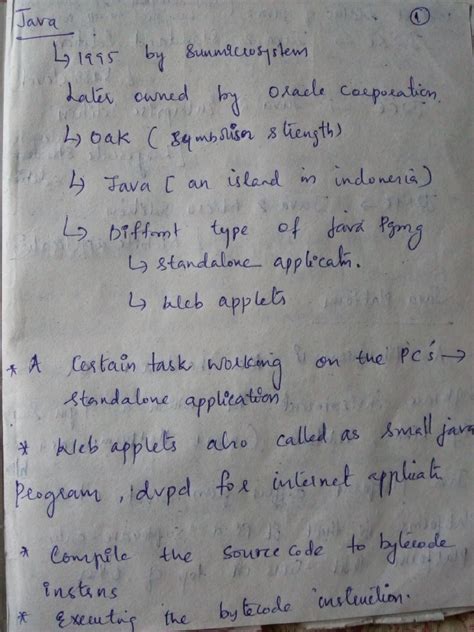 Java ①
↳ 1995 by Sunmicrosystem
Later owned by Oracle Corporation
↳ Oak ( Symboliser strength)
↳ Java ( an island in indonesia)
↳ Diffrnt type of Java Pgmg
↳ Standalone applicatn.
↳ Web applets
* A Certain task working on the PC's →
Standalone application
* Web applets also called as small java
Program, dvpd for internet applicatn
* Compile the Source code to bytecode
instrns
* Executing the bytecode instruction.